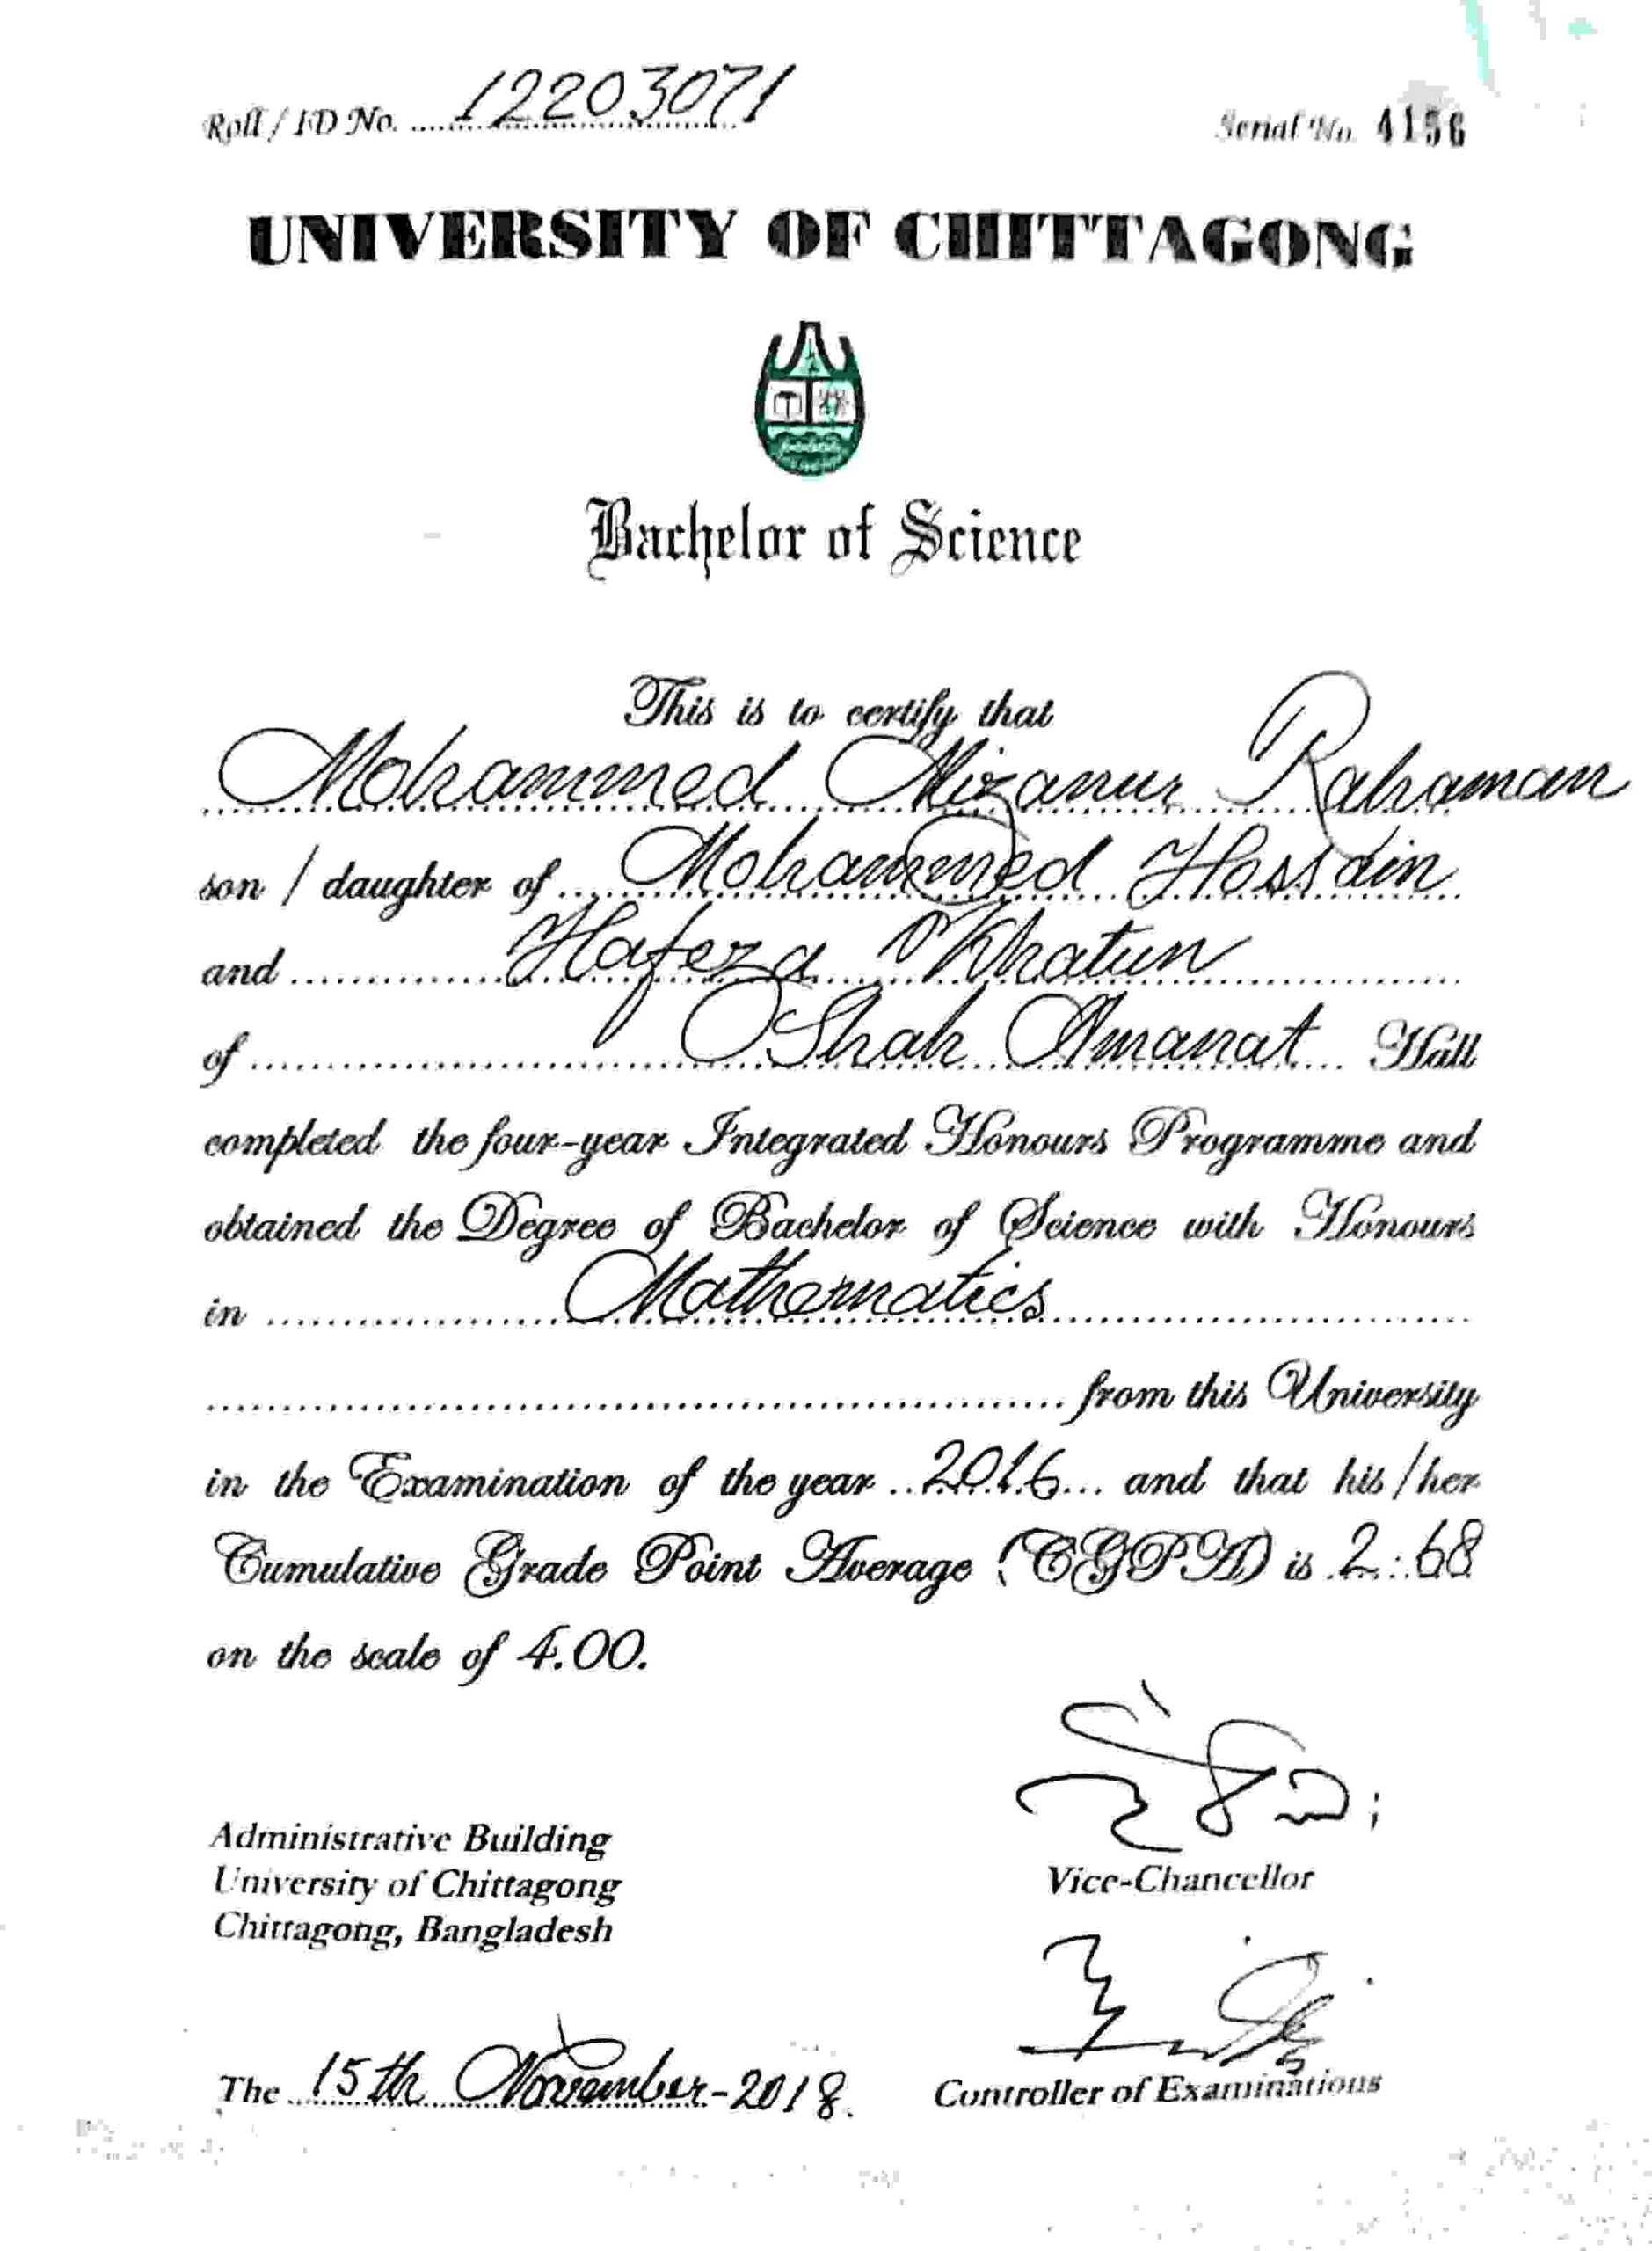 Roll / ID No. 12203071
Serial No. 4156
UNIVERSITY OF CHITTAGONG
Bachelor of Science
This is to certify that
Mohammed Mizanur Rahaman
son / daughter of Mohammed Hossain
and Hafeza Khatun
of Shah Amanat Hall
completed the four-year Integrated Honours Programme and
obtained the Degree of Bachelor of Science with Honours
in Mathematics
from this University
in the Examination of the year 2016 and that his/her
Cumulative Grade Point Average (CGPA) is 2.68
on the scale of 4.00.
Administrative Building
University of Chittagong
Chittagong, Bangladesh
Vice-Chancellor
The 15th November-2018.
Controller of Examinations